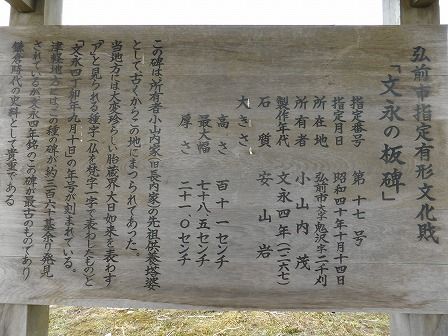 弘前市指定有形文化財
「文永の板碑」
指定番号 第十七号
指定月日 昭和四十年十月十四日
所在地 弘前市大字鬼沢字二千刈
所有者 小山内茂
製作年代 文永四年(一二六七)
石質 安山岩
大きさ
高さ 百十一センチ
最大幅 七十八、五センチ
厚さ 二十一、〇センチ
この碑は所有者小山内家(旧長内家)の先祖供養塔婆
として古くからこの地にまつられてあった。
当地方には大変珍らしい胎蔵界大日如来を表わす
「ア」と見られる種字(仏を梵字一字で表わしたもの)と
「文永四丁卯年九月十日」の年号が刻まれている。
津軽地方にはこの種の碑が約二百六十基ホリ発見
されているが文永四年銘のこの碑が最古のものであり
鎌倉時代の史料として貴重である